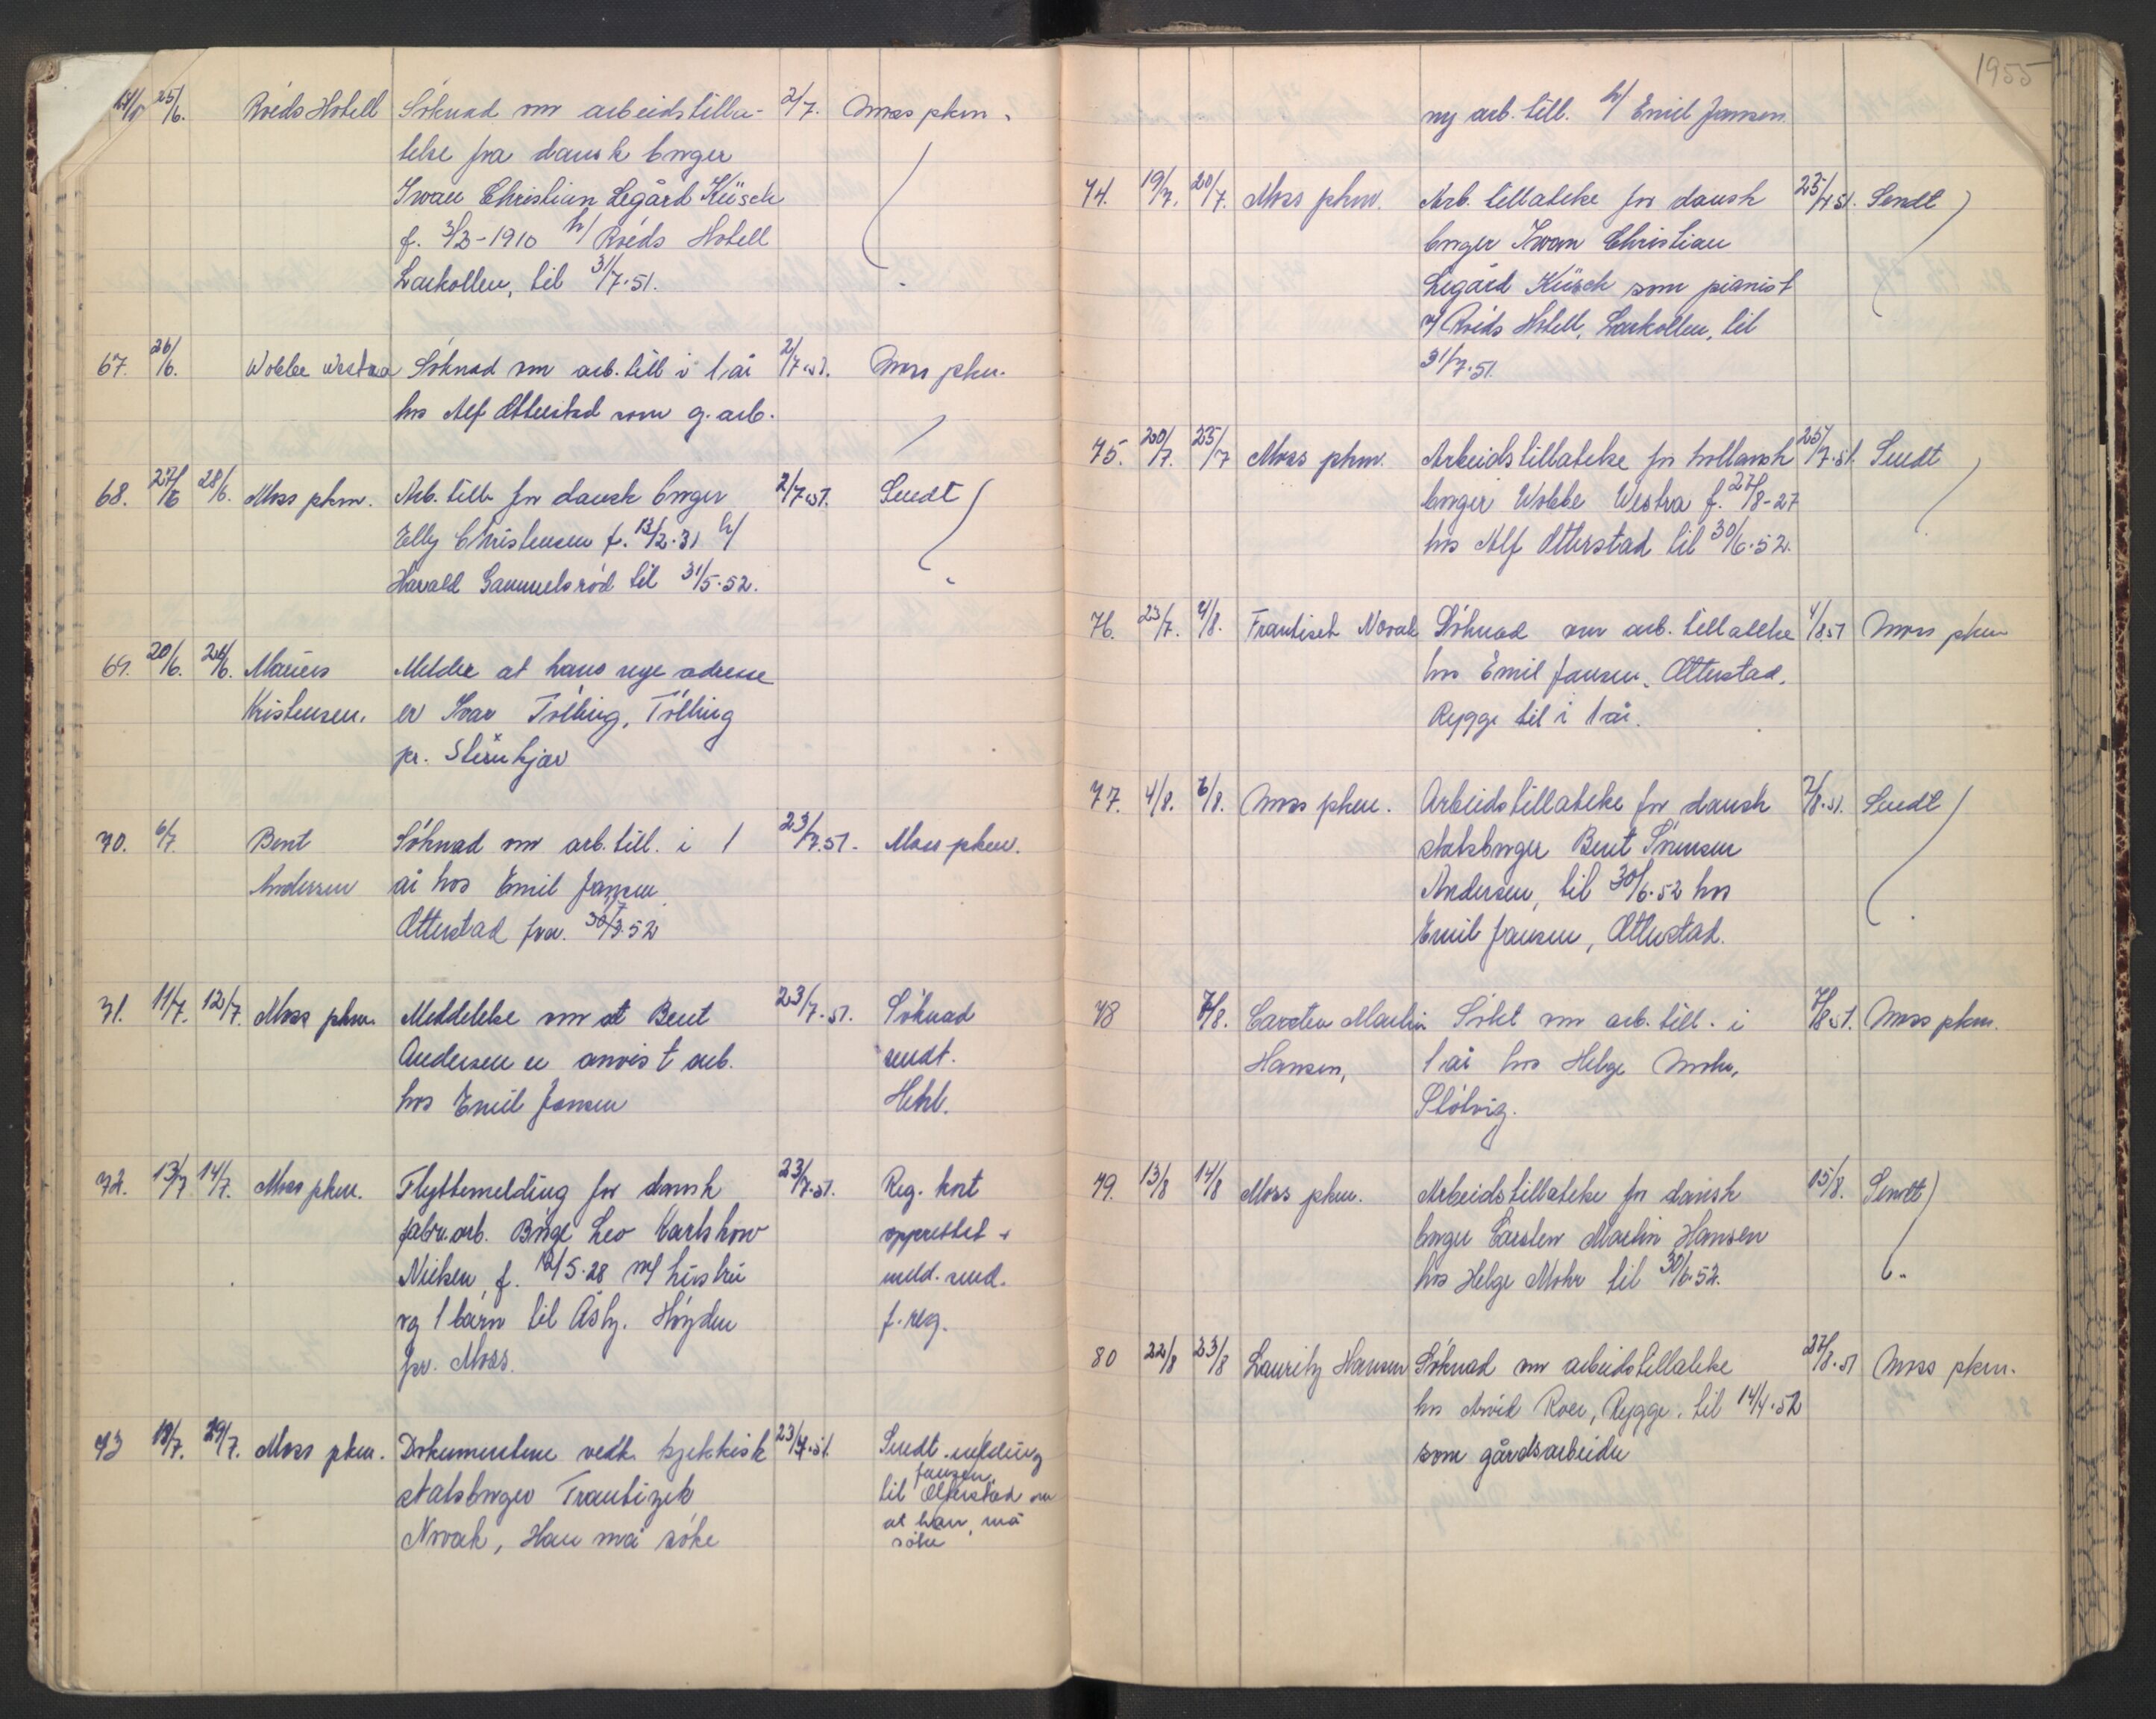 25/6. Røeds Hotell Söknad om arbeidstilla- 2/7. Moss pkm.
telse fra dansk borger
Iwan Christian Legård Küsch
f. 3/3-1910 h/ Røeds Hotell
Larkollen, til 31/7.51.
67. 26/6. Wobbe Westra Söknad om arb. till i 1 år 2/7.51. Moss pkm.
hos Alf Otterstad som g. arb.
68. 27/6 28/6. Moss pkm. Arb. till. for dansk borger 2/7.51. Sendt
Elly Christensen f. 13/2.31 h/
Harald Gammelsröd til 31/5.52.
69. 20/6. 28/6. Marius Melder at hans nye adresse
Kristensen. er Ivar Tölling, Tölling
pr. Steinkjær
70. 6/7. Bent Söknad om arb. till. i 1 23/7.51. Moss pkm.
Andersen år hos Emil Jansen
Otterstad fra. 30/7.52
71. 11/7. 12/7. Moss pkm. Meddelelse om at Bent 23/7.51. Söknad
Andersen er anvist arb. sendt.
hos Emil Jansen Hehl.
72. 13/7 14/7. Moss pkm. Flyttemelding for dansk 23/7.51. Reg. kort
fabr. arb. Börge Leo Karlskov opprettet +
Nielsen f. 12/5.28 m/ hustru meld. send.
og 1 barn til Åshg. Höyden f. reg.
pr. Moss.
73 18/7. 19/7. Moss pkm. Dokumentene vedk. tsjekkisk 23/7.51. Sendt melding
Jansen
statsborger Frantizek til Otterstad om
at han må
Novak, Han må söke söke
1955
ny arb. till. h/ Emil Jansen.
74. 19/7. 20/7. Moss pkm. Arb. tillatelse for dansk 25/7.51. Sendt
borger Iwan Christian
Legård Küsch som pianist
v/ Røeds Hotell, Larkollen, til
31/7.51.
75. 20/7. 23/7 Moss pkm. Arbeidstillatelse for hollansk 25/7.51. Sendt
borger Wobbe Westra f. 27/8-27
hos Alf Otterstad til 30/6.52.
76. 23/7. 4/8. Frantisek Novak Söknad om arb. tillatelse 4/8.51 Moss pkm
hos Emil Jansen, Otterstad,
Rygge til i 1 år.
77. 4/8. 6/8. Moss pkm. Arbeidstillatelse for dansk 7/8.51. Sendt
statsborger Bent Sörensen
Andersen, til 30/6.52 hos
Emil Jansen, Otterstad.
78 7/8. Carsten Martin Sökt om arb. till. i 7/8.51. Moss pkm.
Hansen, 1 år hos Helge Mohr,
Stölvig.
79. 13/8 14/8 Moss pkm. Arbeidstillatelse for dansk 15/8. Sendt
borger Carsten Martin Hansen
hos Helge Mohr til 30/6.52.
80 22/8 23/8 Lauritz Hansen Söknad om arbeidstillatelse 27/8.51 Moss pkm.
hos Arvid Roer, Rygge. til 14/4.52
som gårdsarbeider